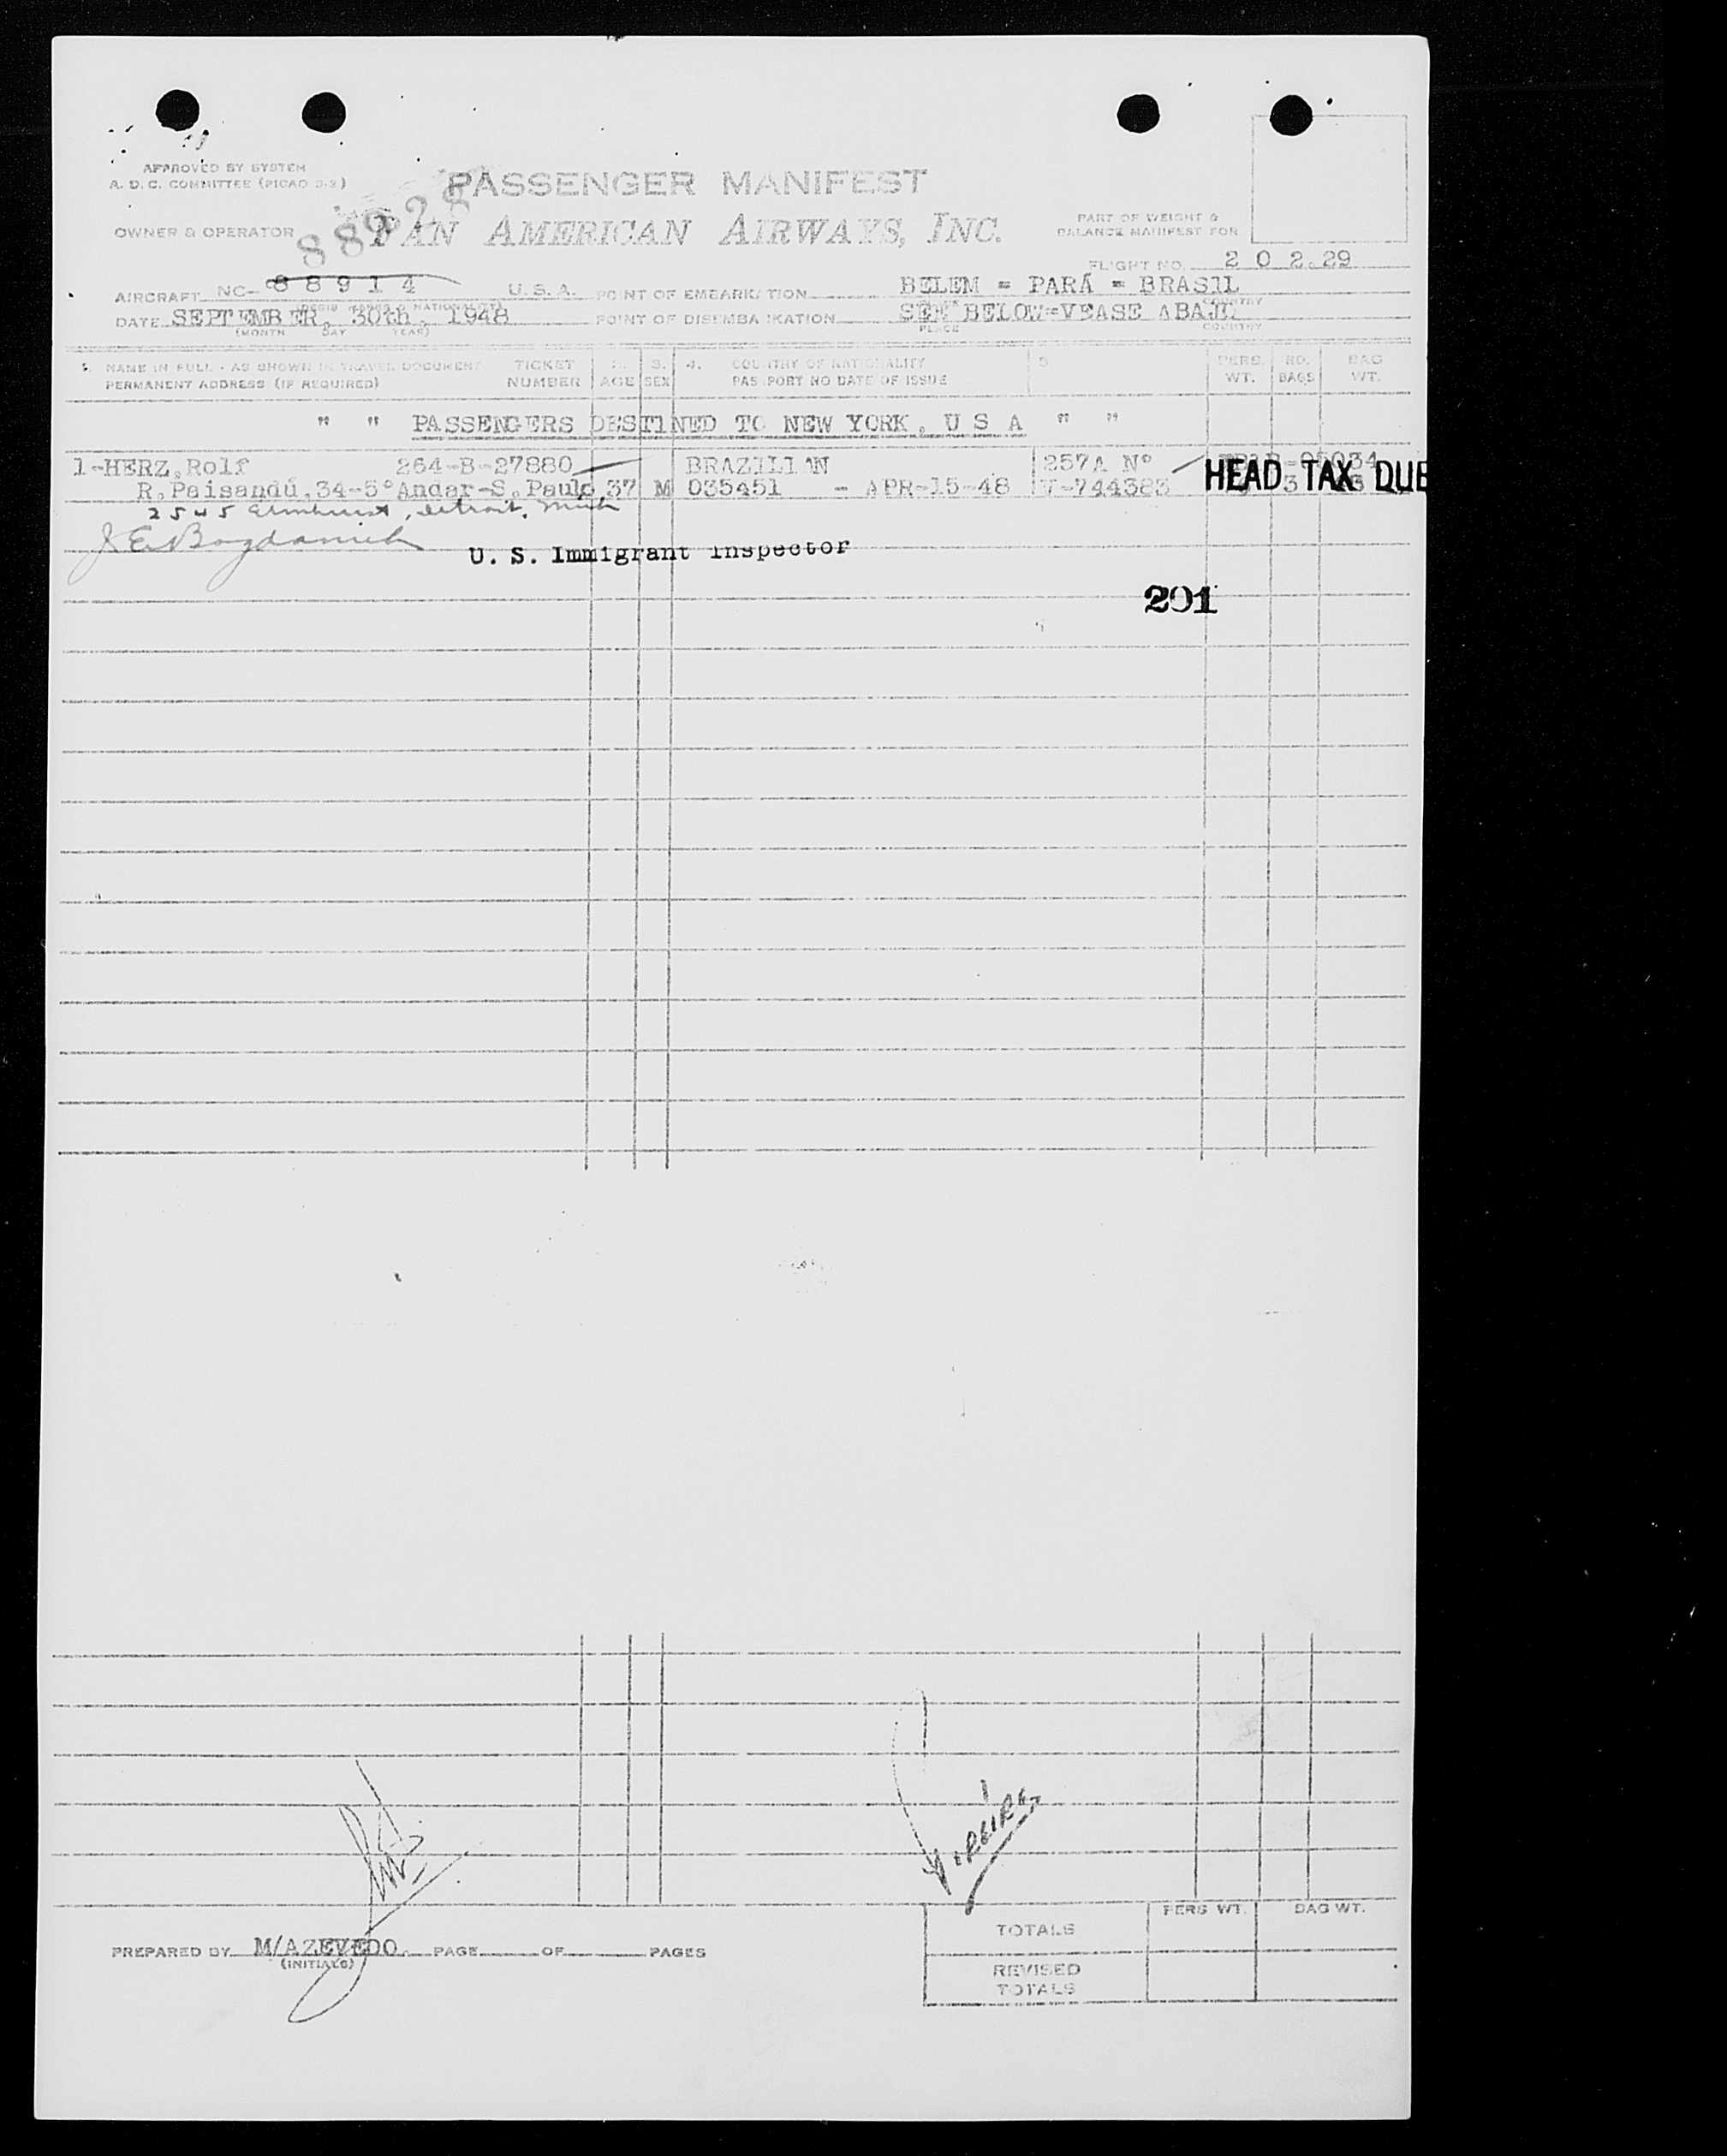 APPROVED BY SYSTEM
A. D. C. COMMITTEE (PICAO 2-2)
PASSENGER MANIFEST
88928
OWNER & OPERATOR PAN AMERICAN AIRWAYS, INC.
PART OF WEIGHT &
BALANCE MANIFEST FOR
FLIGHT NO. 2 0 2.29
AIRCRAFT NC- 88914 U. S. A. POINT OF EMBARKATION BELEM = PARÁ = BRASIL
DATE SEPTEMBER, 30th, 1948 POINT OF DISEMBARKATION SEE BELOW=VEASE ABAJO
(MONTH DAY YEAR) PLACE COUNTRY
1. NAME IN FULL - AS SHOWN IN TRAVEL DOCUMENT TICKET 2. 3. 4. COUNTRY OF NATIONALITY 5 PERS. NO. BAG
PERMANENT ADDRESS (IF REQUIRED) NUMBER AGE SEX PASSPORT NO DATE OF ISSUE WT. BAGS WT.
" " PASSENGERS DESTINED TO NEW YORK, U S A " "
1-HERZ, Rolf 264-B-27880 BRAZILIAN 257A Nº
R. Paisandú, 34-5º Andar-S. Paulo 37 M 035451 - APR-15-48 V-744383 HEAD TAX DUE
2545 Elmhurst, Detroit, Mich
J E Bogdanich U. S. Immigrant Inspector
201
Pereira
PREPARED BY M/AZEVEDO. PAGE OF PAGES
(INITIALS)
PERS WT. BAG WT.
TOTALS
REVISED
TOTALS